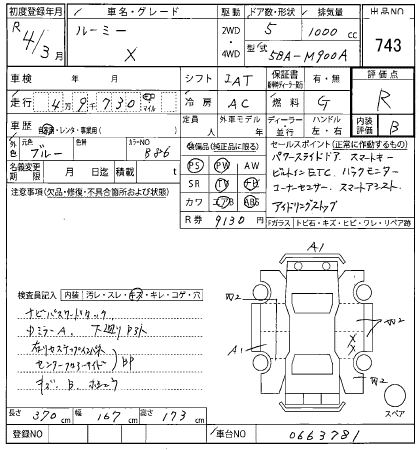 初度登録年月 車名・グレード 駆動 ドア数・形状 排気量 出品NO
R4/3月 ルーミー X 2WD・4WD 5 1000cc 743
型式 5BA-M900A
車検 年 月 シフト IAT 保証書 有・無 評価点
走行 4万9千730 マイル 冷房 AC 燃料 G R
車歴 自家用・レンタ・事業用( ) 定員 人 外車モデル 年 ディーラー 並行 ハンドル 左・右 内装評価 B
外色 元色 ブルー 色替 カラーNO B86
装備品(純正品に限る) セールスポイント(正常に作動するもの)
名義変更期限 月 日迄 積載 t PS PW AW パワースライドドア、スマートキー
注意事項(欠品・修復・不具合箇所および状態) SR TV ナビ ビルトインETC、バックモニター
カワ エアB ABS コーナーセンサー、スマートアシスト
R券 9130円 アイドリングストップ
ガラス・トビ石・キズ・ヒビ・ワレ・リペア跡
A1
検査員記入 内装 汚レ・スレ・キズ・キレ・コゲ・穴
W2
W2
ナビパスワードロック
A1
XX
下廻り
W2
BP
キズ、B、
スペア
長さ 370cm 幅 167cm 高さ 173cm
登録NO 車台NO 0663781